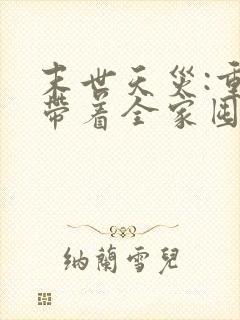 末世天災:重
帶着全家囤
納蘭雪兒